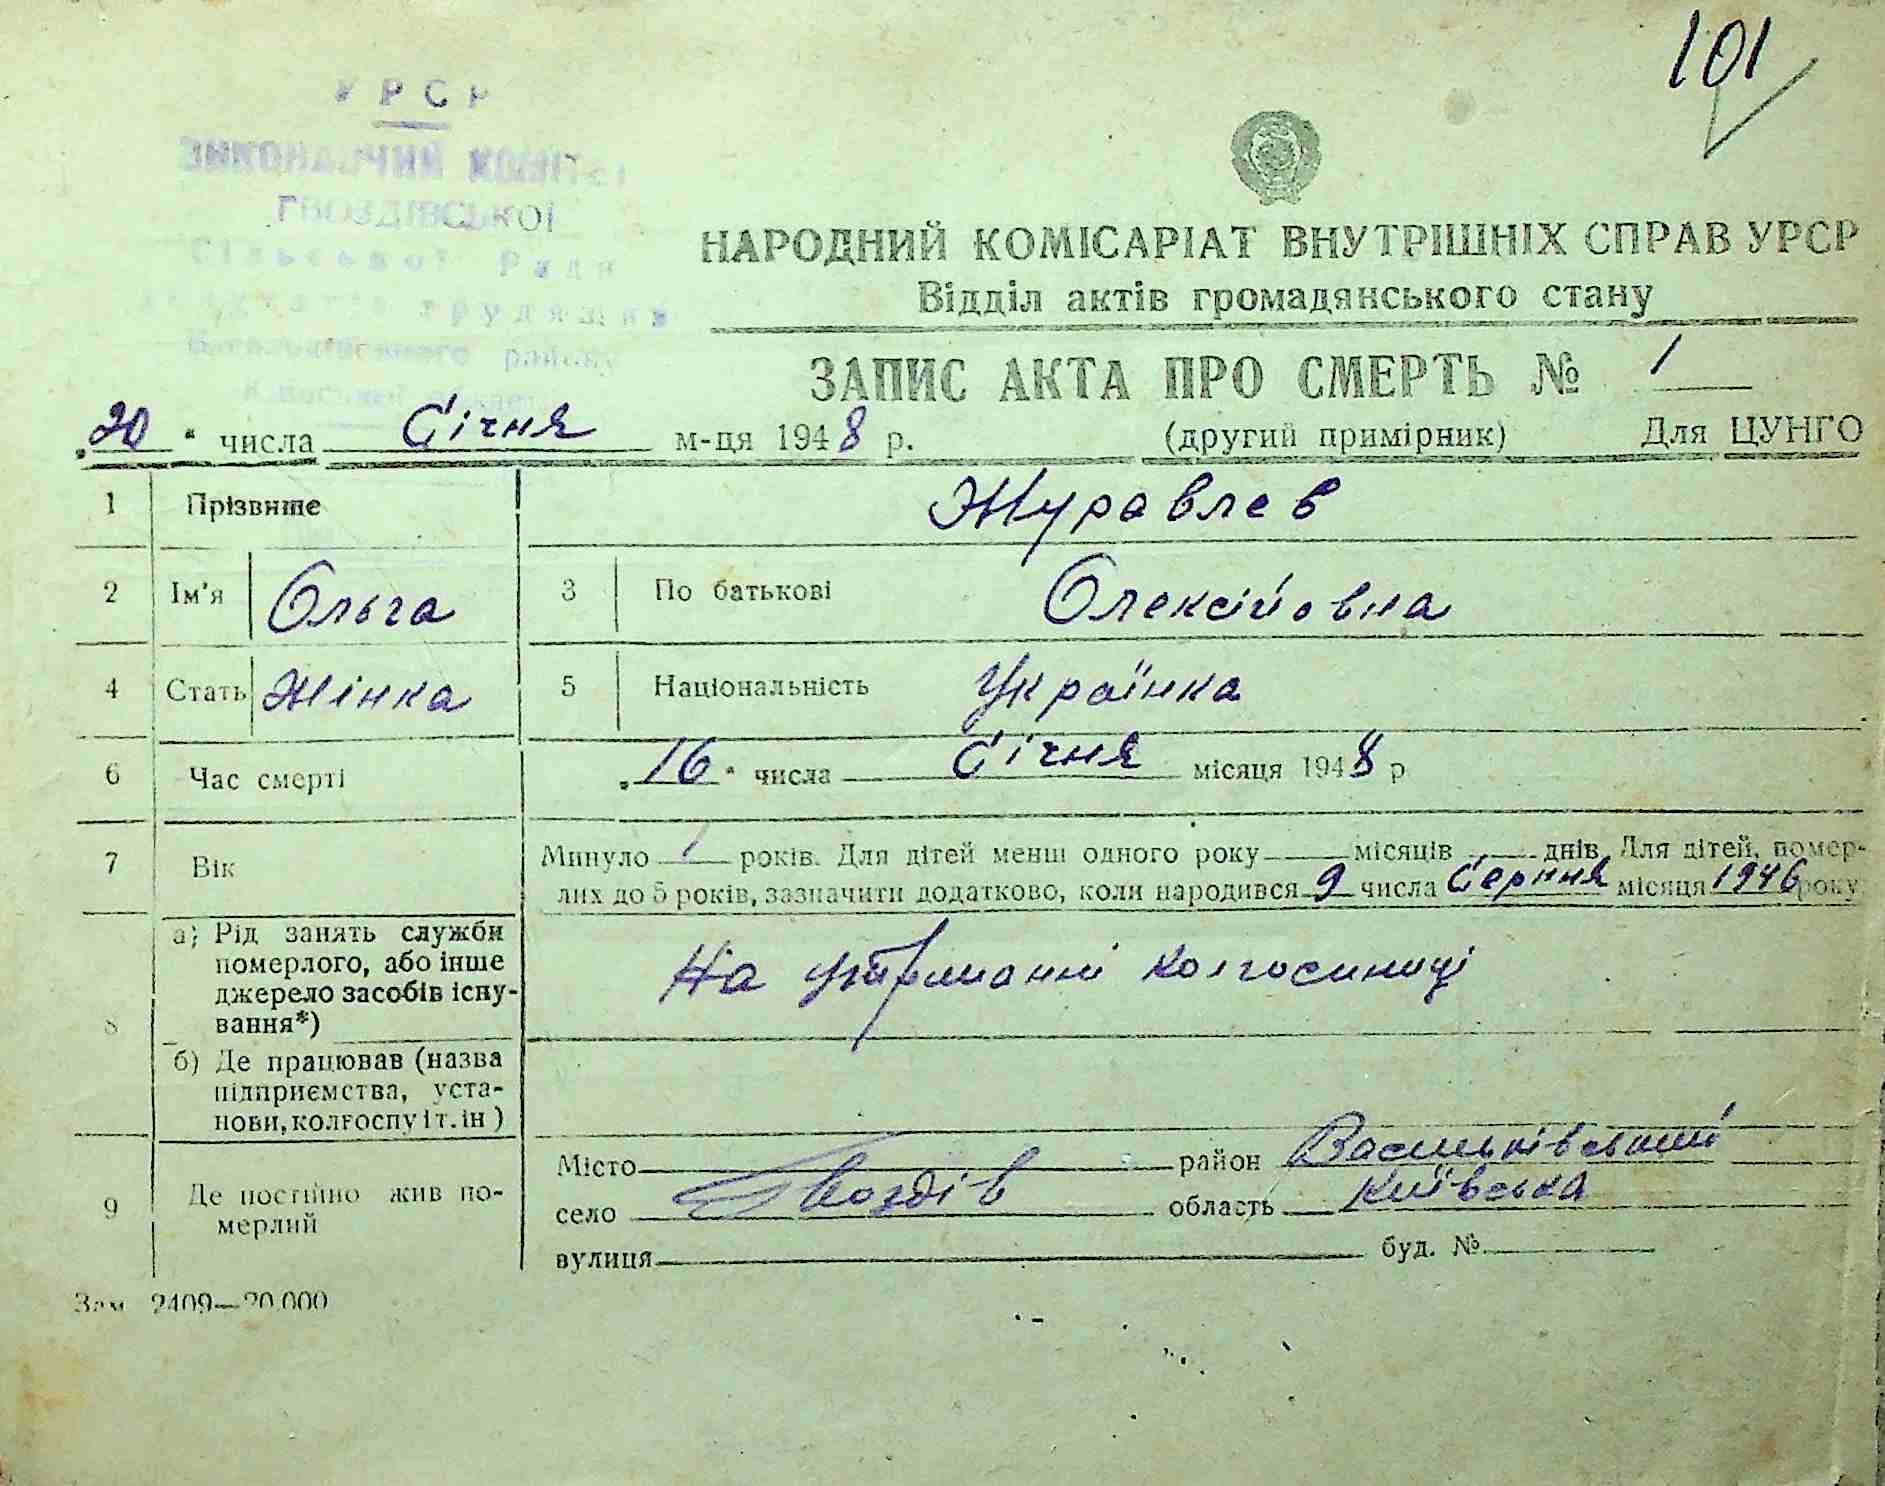 101
УРСР
ВИКОНАВЧИЙ КОМІТЕТ
ГВОЗДІВСЬКОЇ
Сільської Ради
депутатів трудящих
Васильківського району
Київської області
НАРОДНИЙ КОМІСАРІАТ ВНУТРІШНІХ СПРАВ УРСР
Відділ актів громадянського стану
ЗАПИС АКТА ПРО СМЕРТЬ № 1
„20“ числа Січня м-ця 1948 р. (другий примірник) Для ЦУНГО
1 Прізвище Журавлев
2 Ім'я Ольга 3 По батькові Олексійовна
4 Стать Жінка 5 Національність Українка
6 Час смерті „16“ числа Січня місяця 1948 р
7 Вік Минуло 1 років. Для дітей менш одного року місяців днів. Для дітей, помер-
лих до 5 років, зазначити додатково, коли народився 9 числа Серпня місяця 1946 року
8 а) Рід занять служби
померлого, або інше
джерело засобів існу-
вання*)
На утриманні колгоспниці
б) Де працював (назва
підприємства, уста-
нови, колгоспу і т. ін)
9 Де постійно жив по-
мерлий
Місто район Васильківський
село Гвоздів область Київська
вулиця буд. №
Зам. 2409—20.000